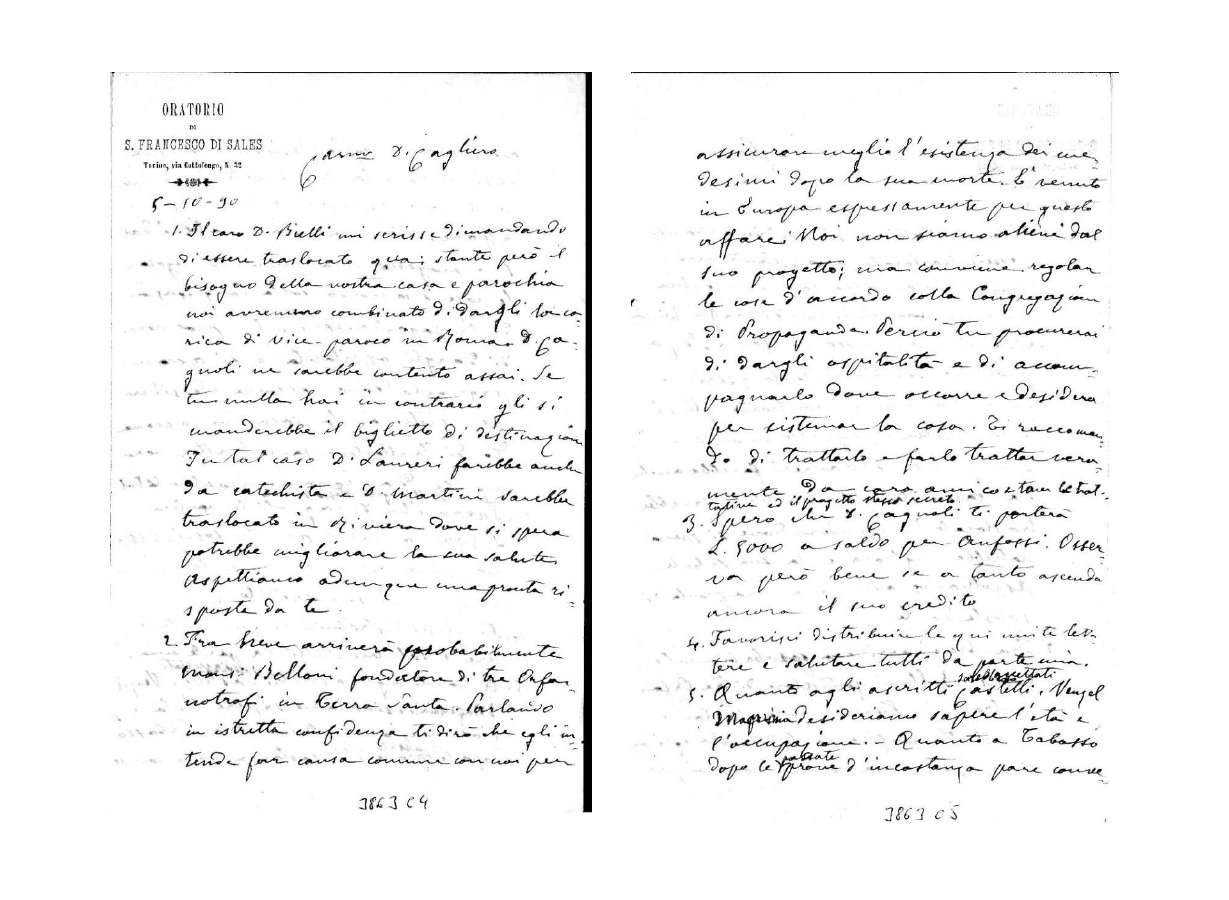 ORATORIO
DI
S. FRANCESCO DI SALES
Torino, via Cottolengo, N. 32
Carmo D. Cagliero
5-10-90
1. Il caro D. Bielli mi scrisse dimandando
di essere traslocato qua; stante però il
bisogno della nostra casa e parochia
noi avremmo combinato di dargli la ca-
rica di Vice-paroco in Roma. D. Ca-
gnoli ne sarebbe contento assai. Se
tu nulla hai in contrario gli si
manderebbe il biglietto di destinazione
In tal caso D. Laureri farebbe anche
da catechista e D. Martini sarebbe
traslocato in Riviera dove si spera
potrebbe migliorare la sua salute.
Aspettiamo adunque una pronta ri-
sposta da te.
2. Fra breve arriverà probabilmente
Mons. Belloni fondatore di tre Orfa-
notrofi in Terra Santa. Parlando
in istretta confidenza ti dirò che egli in-
tende far causa comune con noi per
3863 C4
assicurare meglio l'esistenza dei me-
desimi dopo la sua morte. È venuto
in Europa espressamente per questo
affare. Noi non siamo alieni dal
suo progetto; ma conviene regolar
le cose d'accordo colla Congregazione
di Propaganda. Perciò tu procurerai
di dargli ospitalità e di accom-
pagnarlo dove occorre e desidera
per sistemar la cosa. Ti raccoman-
do di trattarlo e farlo trattar vera-
mente da caro amico e tener le trat-
tative ed il progetto stesso secreto.
3. Spero che D. Cagnoli ti porterà
L. 5000 a saldo per Anfossi. Osser-
va però bene se a tanto ascenda
ancora il suo credito
4. Favorisci distribuire le qui unite let-
tere e salutare tutti da parte mia.
5. Quanto agli ascritti Castelli, Venzel
accettati
desideriamo sapere l'età e
l'occupazione. - Quanto a Tabasso
dopo le passate prove d'incostanza pare conve-
3863 C5